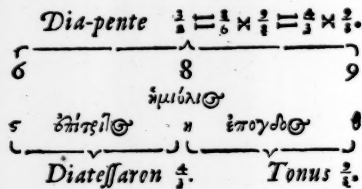 Dia-pente 3/2 = 8/6 × 9/8 = 4/3 × 9/8.
6 8 9
ἡμιόλιος
ϛ ἐπίτριτος η ἐπόγδοος θ
Diateſſaron 4/3. Tonus 9/8.